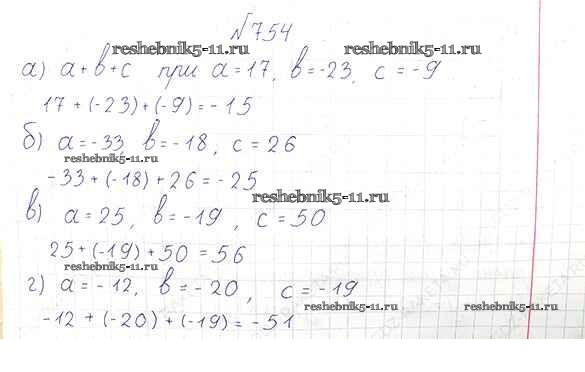 №754
reshebnik5-11.ru reshebnik5-11.ru
а) a+b+c при a=17, b=-23, c=-9
17+(-23)+(-9)=-15
б) a=-33, b=-18, c=26
reshebnik5-11.ru
-33+(-18)+26=-25
reshebnik5-11.ru
в) a=25, b=-19, c=50
25+(-19)+50=56
reshebnik5-11.ru
г) a=-12, b=-20, c=-19
reshebnik5-11.ru reshebnik5-11.ru
-12+(-20)+(-19)=-51